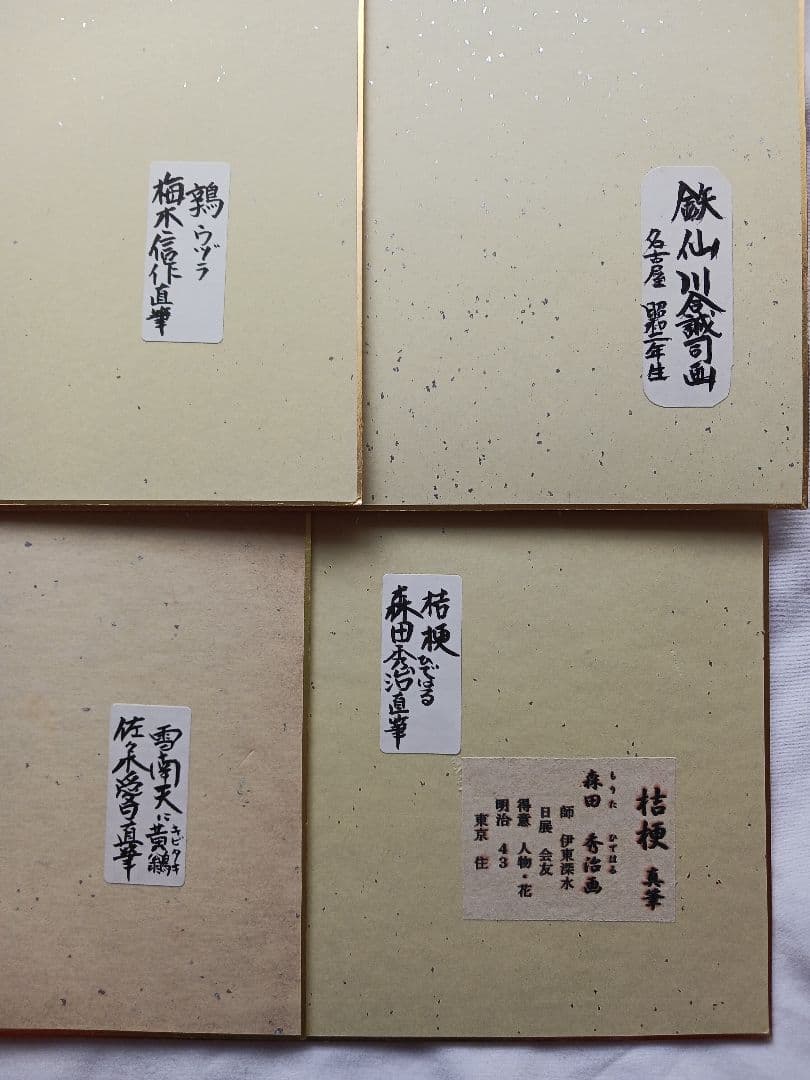 鶉 ウヅラ
梅木信作直筆
鉄仙 川合誠司画
名古屋 昭和二年生
雪南天に黄鶲
キビタキ
佐々木直筆
桔梗
森田秀治直筆
ひではる
桔梗 真筆
森田 秀治画
もりた ひではる
師 伊東深水
日展 会友
得意 人物・花
明治 43
東京 住